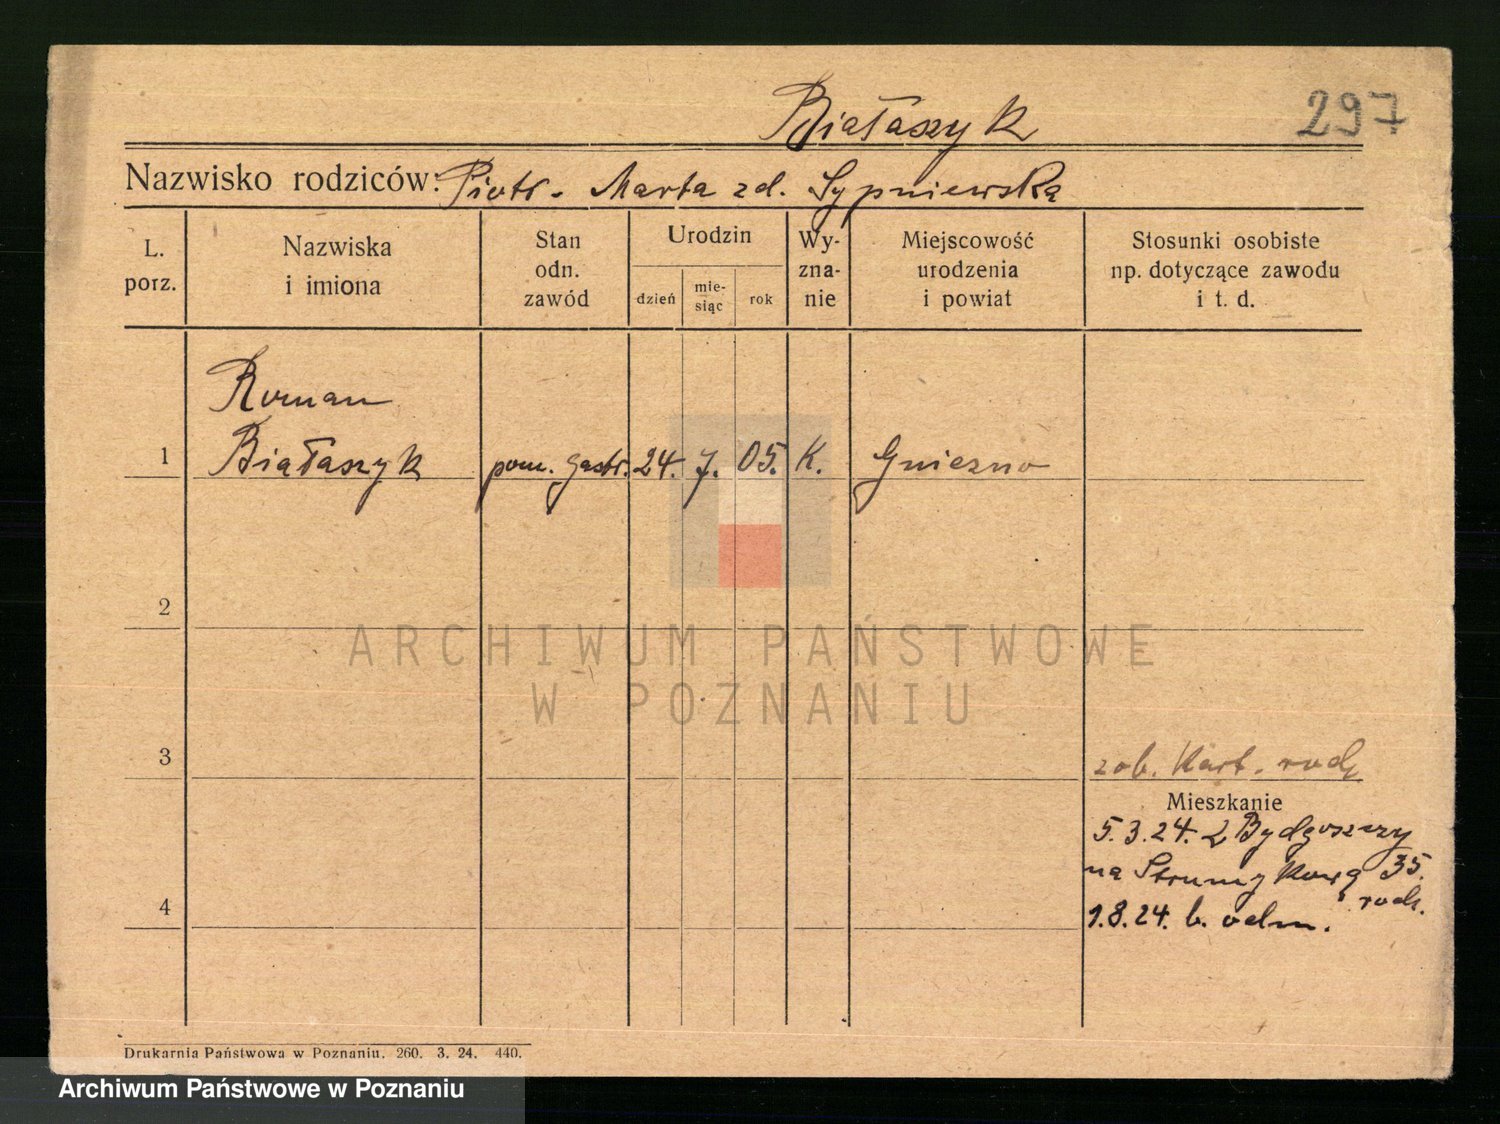 Białaszyk 297
Nazwisko rodziców: Piotr - Marta zd. Sypniewska
L.
porz.
Nazwiska
i imiona
Stan
odn.
zawód
Urodzin
dzień
mie-
siąc
rok
Wy-
zna-
nie
Miejscowość
urodzenia
i powiat
Stosunki osobiste
np. dotyczące zawodu
i t. d.
Roman
1 Białaszyk pom. gastr. 24. 7. 05. K. Gniezno
2
ARCHIWUM PAŃSTWOWE
W POZNANIU
3 zob. Kart. rodz
Mieszkanie
5.3.24. z Bydgoszczy
na Strumykową 35.
rodz.
4 1.8.24. b. odm.
Drukarnia Państwowa w Poznaniu. 260. 3. 24. 440.
Archiwum Państwowe w Poznaniu